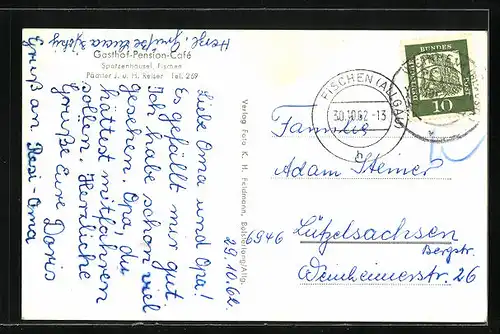 Herzl. Grüße
Gasthof-Pension-Café
Spatzenhäusel, Fischen
Pächter J. u. H. Reiser Tel. 269
29.10.62.
Liebe Oma und Opa!
Es gefällt mir gut.
Ich habe schon viel
gesehen. Opa, du
hättest mitfahren
sollen. Herzliche
Grüße Eure Doris
Gruß an Resi-Oma
Verlag Foto K. H. Feldmann, Bolsterlang/Allg.
DEUTSCHE BUNDESPOST
10
FISCHEN (ALLGÄU)
30.10.62.-13
h
Familie
Adam Steiner
6946 Lützelsachsen
Bergstr.
Weinheimerstr. 26